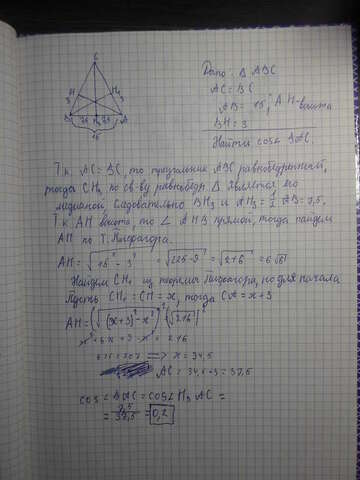 C
H
H₁
3
3
B
7,5
7,5
A
15
Дано: Δ ABC
AC = BC
AB = 15, AH - высота
BH = 3
Найти cos∠BAC.
Т.к. AC = BC, то треугольник ABC равнобедренный,
тогда CH₃ по св-ву равнобедр. Δ является его
медианой. Следовательно BH₃ и AH₃ = ½ AB = 7,5.
Т.к AH высота, то ∠ AHB прямой, тогда найдем
AH по т. Пифагора.
AH = √15² - 3² = √225-9 = √216 = 6√6
Найдем CH₁ из теоремы Пифагора, но для начала
Пусть CH₁ = CH = x, тогда CA = x + 3
AH = (√(x+3)² - x²)² (√216)²
x² + 6x + 9 - x² = 216
6x = 207 => x = 34,5
AC = 34,5 + 3 = 37,5
cos ∠ BAC = cos∠ H₃ AC =
= 7,5/37,5 = 0,2